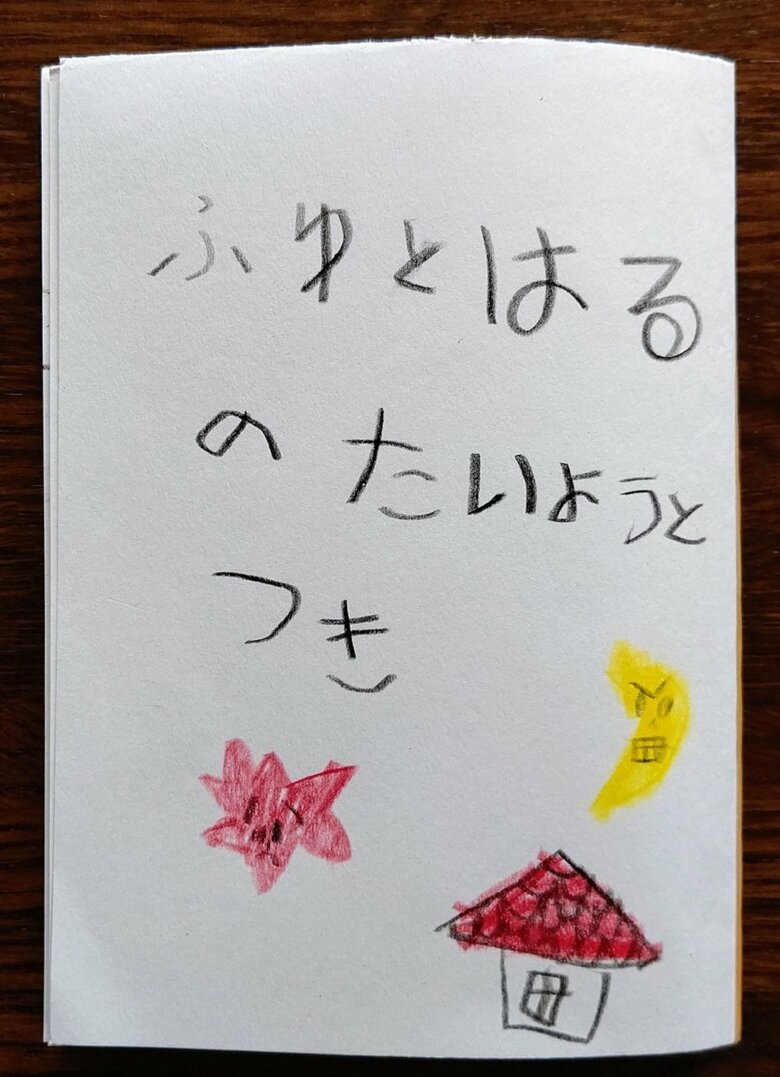 ふゆとはる
のたいようと
つき